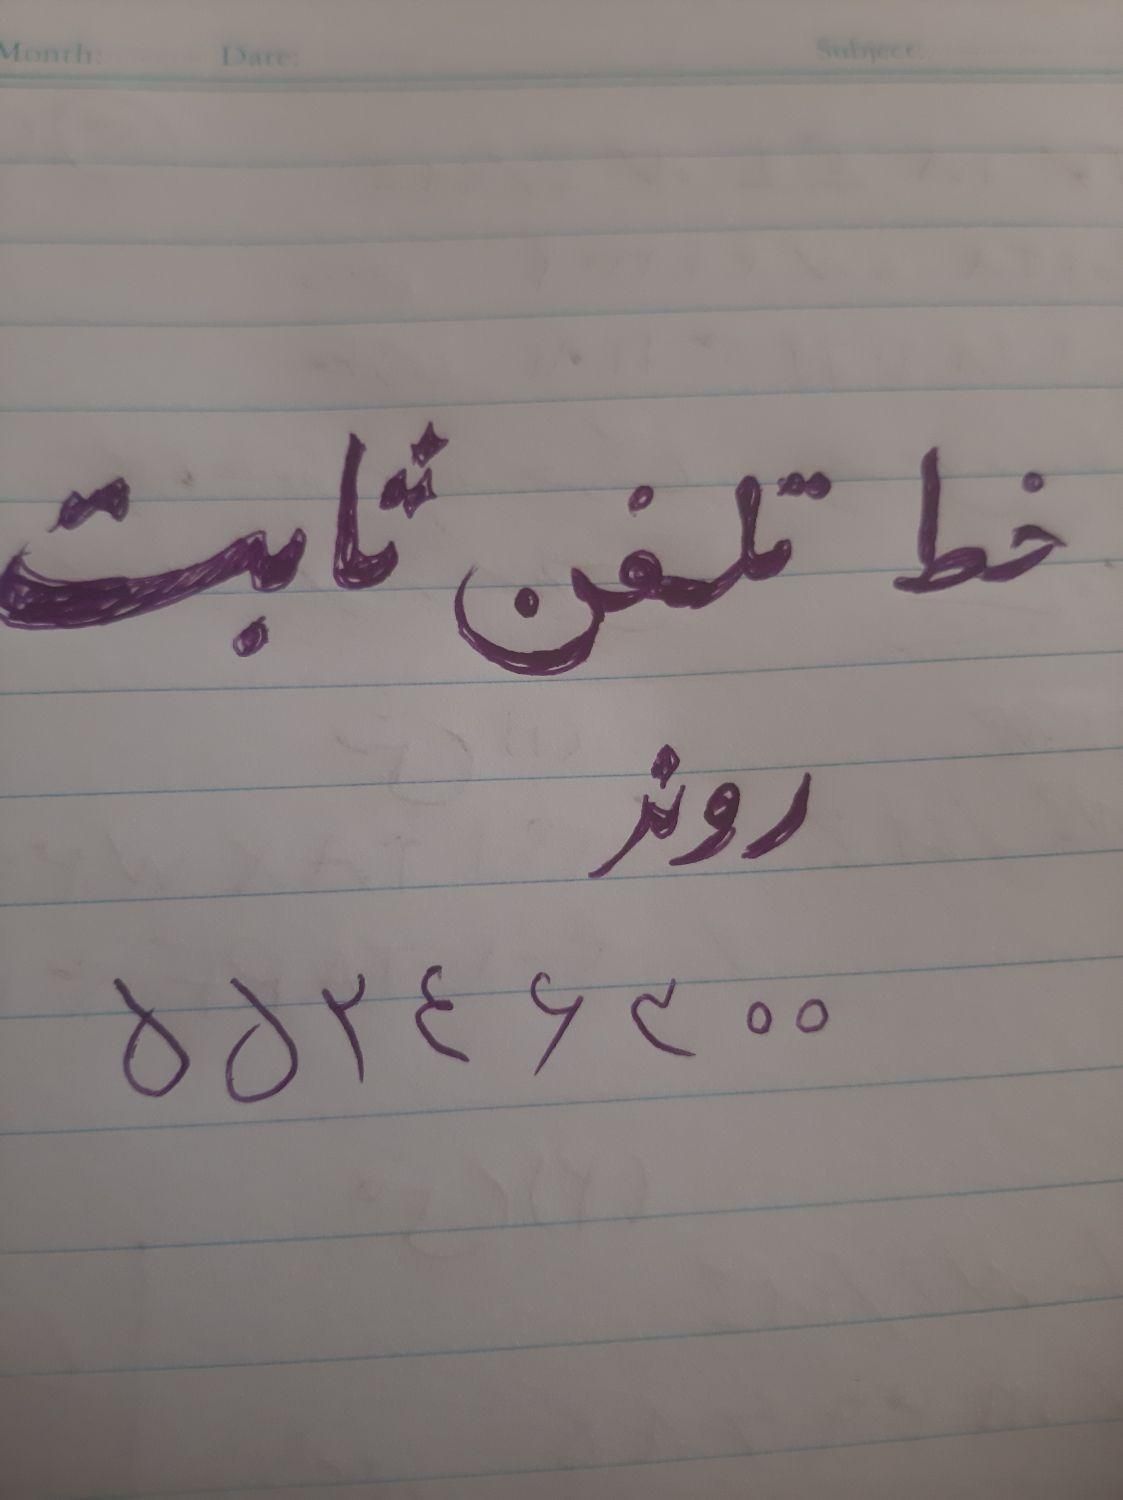 Month: Date: Subject:
خط تلفن ثابت
روند
۵۵۲٤۶٤۰۰